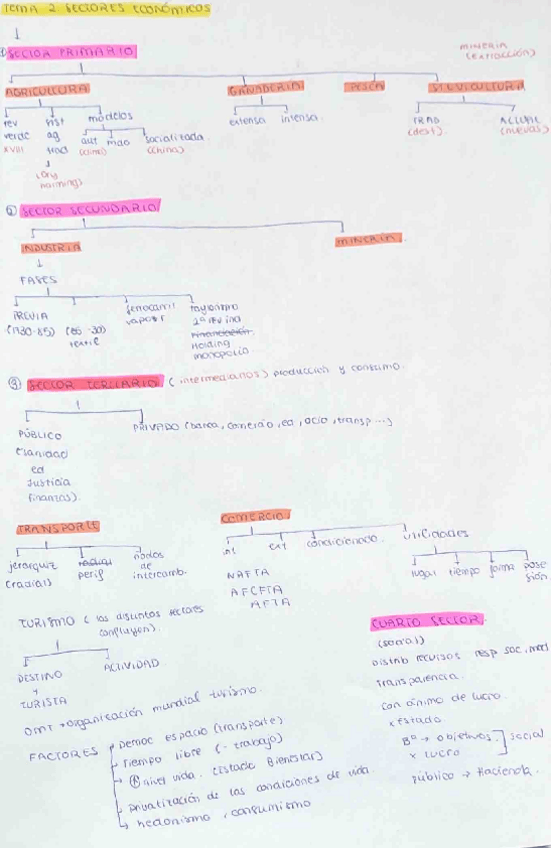 TEMA 2 SECTORES ECONÓMICOS
① SECTOR PRIMARIO
MINERIA
(extracción)
AGRICULTURA GANADERIA PESCA SILVICULTURA
rev verde XVIII
hist ag trad
(dry farming)
modelos
aut mao socializada
(China)
extensa intensa
TRAD (dest)
ACTUAL (nuevas)
② SECTOR SECUNDARIO
INDUSTRIA MINERIA
FASES
PREVIA
(1730-85)
(85-30)
textil
ferrocarril
vapor
taylorismo
2ª rev ind
financiación
holding
monopolio
③ SECTOR TERCIARIO (intermediarios) producción y consumo.
PÚBLICO
(sanidad
ed
justicia
finanzas)
PRIVADO (banca, comercio, ed, ocio, transp...)
TRANSPORTE
jerarquiz
(radial)
radial
perif
nodos
de
intercamb.
COMERCIO
int ext condicionado utilidades
NAFTA
AFCFTA
AFTA
lugar tiempo forma pose
sión
TURISMO (los distintos sectores
confluyen)
DESTINO
Y
TURISTA
ACTIVIDAD
OMT → organización mundial turismo.
FACTORES
democ espacio (transporte)
tiempo libre (- trabajo)
⊕ nivel vida. (Estado Bienestar)
privatización de las condiciones de vida.
hedonismo, consumismo
CUARTO SECTOR
(social)
distrib recursos resp soc, med
transparencia
con ánimo de lucro
x estado.
Bº → objetivos social
x lucro
público → Hacienda.